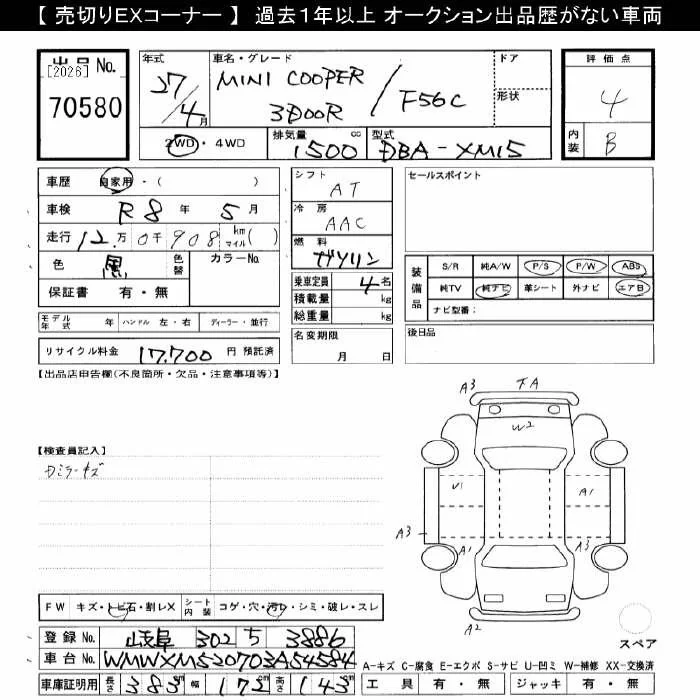 【 売切りEXコーナー 】 過去１年以上 オークション出品歴がない車両
出品 No.
[2026]
70580
年式
27/4月
車名・グレード
MINI COOPER
3DOOR / F56C
ドア
形状
評価点
4
内装
B
2WD・4WD
排気量 1500 cc
型式 DBA-XM15
車歴 自家用・( )
車検 R8年 5月
走行 12万0千908 km マイル( )
色 黒 色替
カラーNo.
保証書 有・無
シフト
AT
冷房
AAC
燃料
ガソリン
乗車定員 4名
積載量 kg
総重量 kg
セールスポイント
装備品
S/R 純A/W P/S P/W ABS
純TV 純ナビ 革シート 外ナビ エアB
ナビ型番：
モデル年式 年 ハンドル 左・右 ディーラー・並行
名変期限
月 日
後日品
リサイクル料金 17,700 円 預託済
【出品店申告欄(不良箇所・欠品・注意事項等)】
A3 FA
W2
【検査員記入】
Dミラーキズ
U1 A1
A3
A1 A3
A2
FW キズ・トビ石・割レX シート内装 コゲ・穴・汚レ・シミ・破レ・スレ
スペア
登録No. 岐阜 302 ち 3886
車台No. WMWXM520703A54584
A-キズ C-腐食 E-エクボ S-サビ U-凹ミ W-補修 XX-交換済
車庫証明用 長さ 383 幅 172 高さ 143
工具 有・無 ジャッキ 有・無